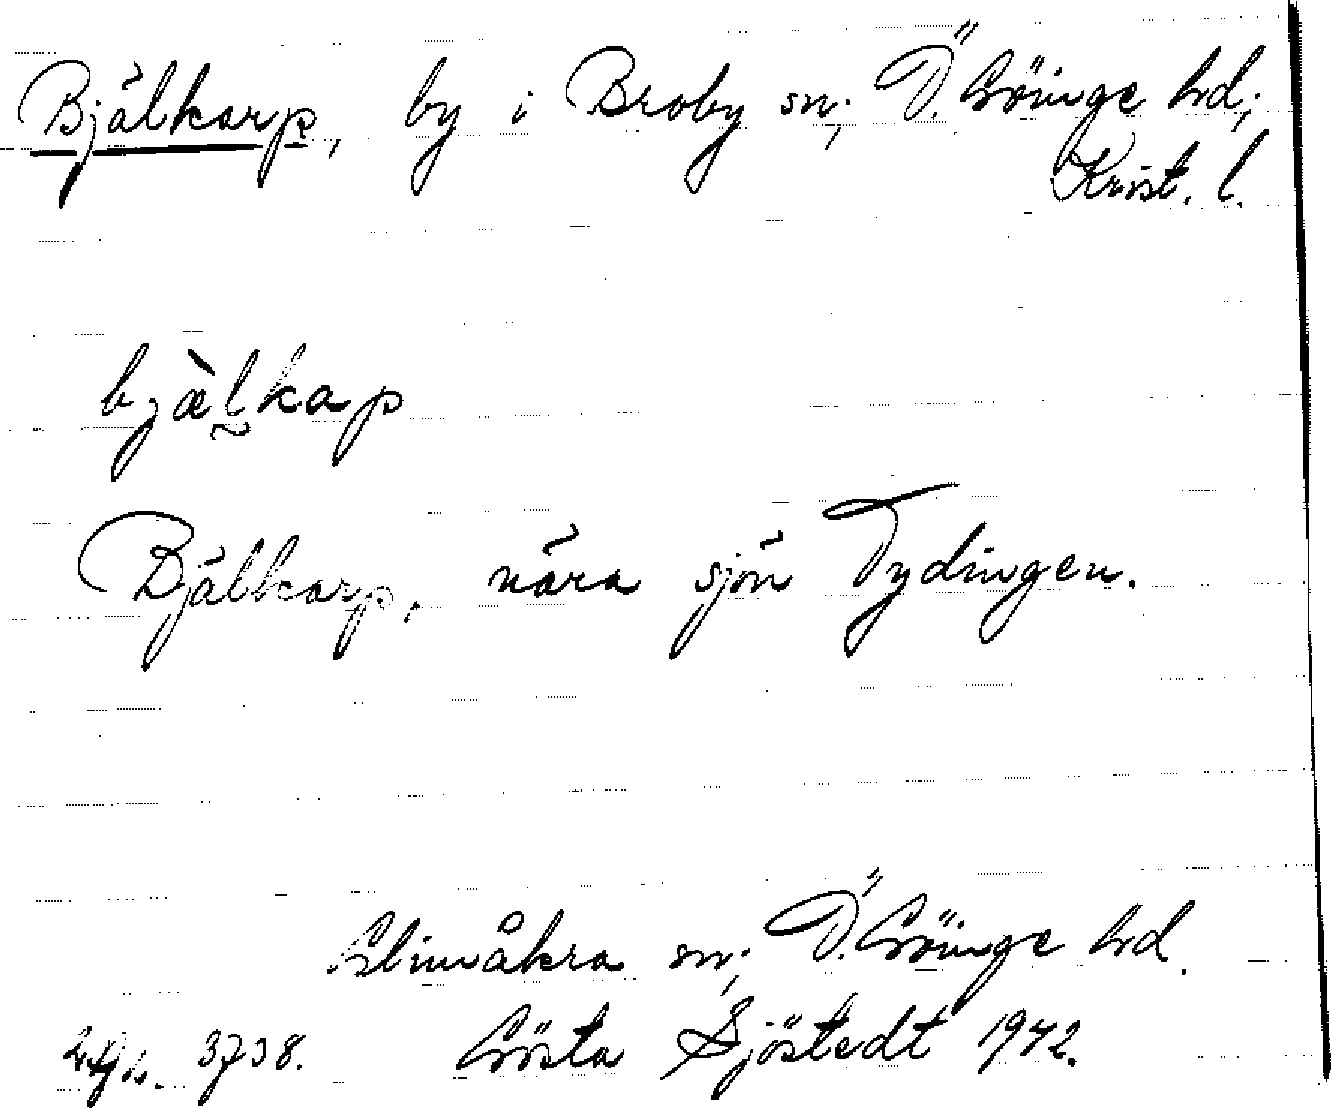 Bjälkarp, by i Broby sn; Ö. Göinge hd;
Krist. l.
bjæ̀l̰kap
Bjälkarp, nära sjön Tydingen.
Glimåkra sn; Ö. Göinge hd.
3738. Gösta Sjöstedt 1942.